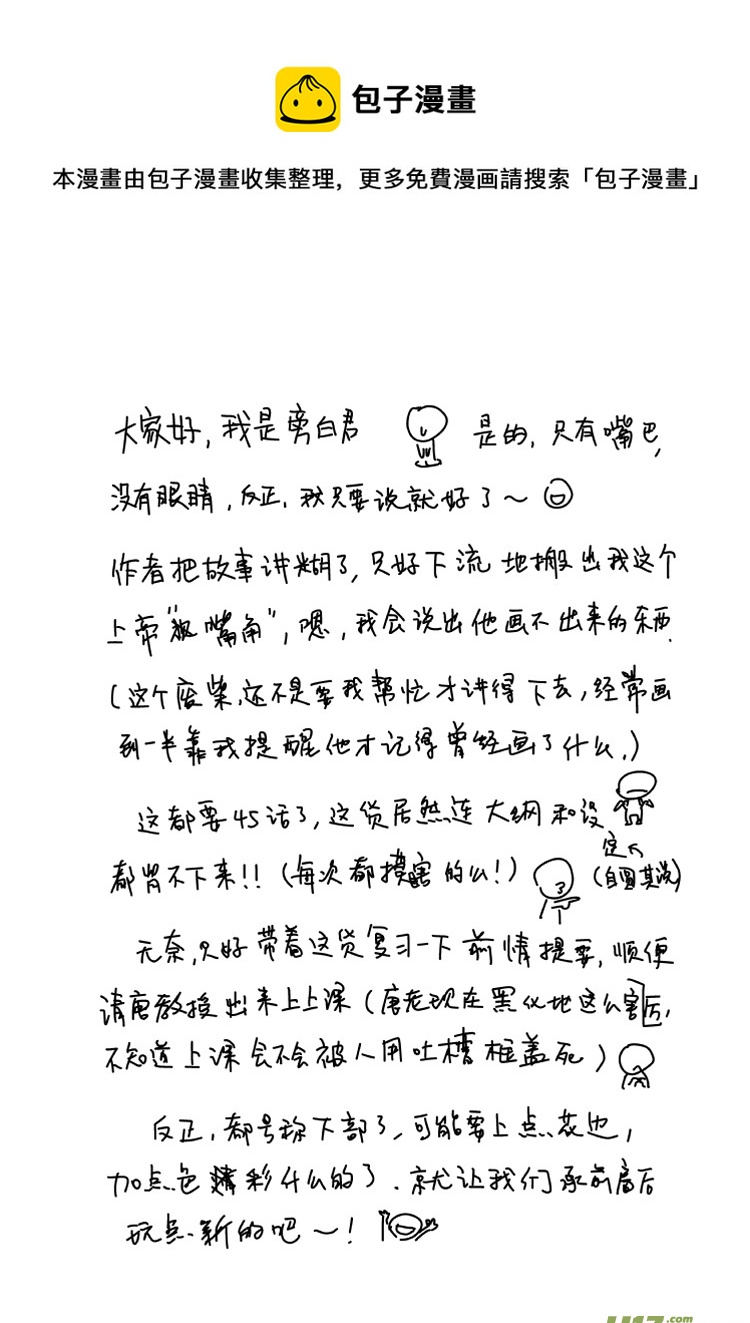 包子漫畫
本漫畫由包子漫畫收集整理，更多免費漫画請搜索「包子漫畫」
大家好，我是旁白君 是的，只有嘴巴，
没有眼睛，反正，我只要说就好了～
作者把故事讲糊了，只好下流地搬出我这个
上帝“视嘴角”，嗯，我会说出他画不出来的东西.
(这个废柴，还不是要我帮忙才讲得下去，经常画
到一半靠我提醒他才记得曾经画了什么.)
这都要45话了，这货居然连大纲和设定
都背不下来!! (每次都摸瞎的么!) (自圆其说)
无奈，只好带着这货复习一下前情提要，顺便
请唐教授出来上上课 (唐老现在黑化地这么害，
不知道上课会不会被人用吐槽框盖死)
反正，都号称下部了，可能要上点花边，
加点色彩什么的了.就让我们承前启后
玩点新的吧～!
U17.com